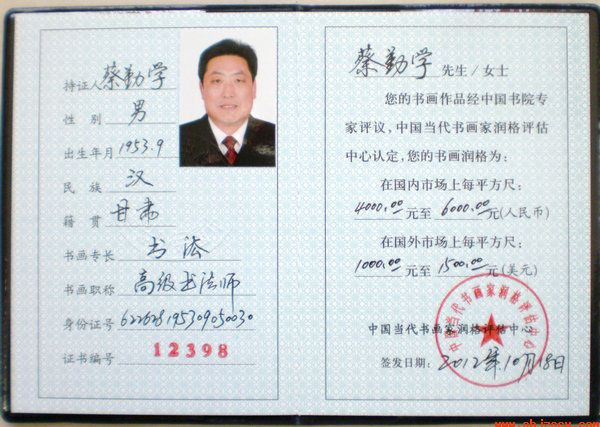 持证人 蔡勤学
性 别 男
出生年月 1953.9
民 族 汉
籍 贯 甘肃
书画专长 书法
书画职称 高级书法师
身份证号 622628195309050030
证书编号 12398
蔡勤学 先生/女士
您的书画作品经中国书院专
家评议,中国当代书画家润格评估
中心认定,您的书画润格为:
在国内市场上每平方尺:
4000.00 元至 6000.00 元(人民币)
在国外市场上每平方尺:
1000.00 元至 1500.00 元(美元)
中国当代书画家润格评估中心
中国当代书画家润格评估中心
签发日期: 2012年10月18日